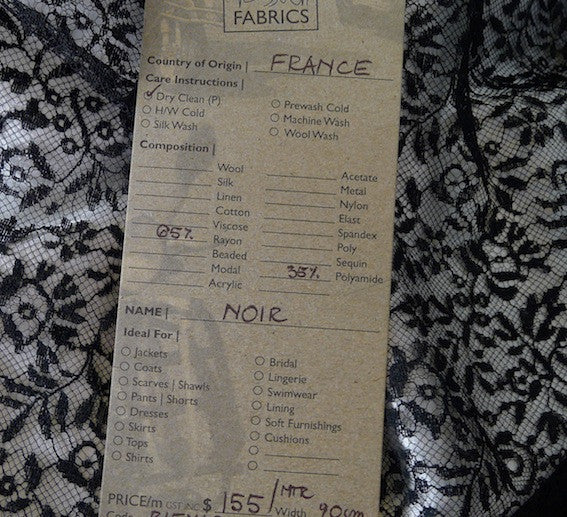 FABRICS
Country of Origin | FRANCE
Care Instructions |
Dry Clean (P)
H/W Cold
Silk Wash
Prewash Cold
Machine Wash
Wool Wash
Composition |
Wool
Silk
Linen
Cotton
65% Viscose
Rayon
Beaded
Modal
Acrylic
Acetate
Metal
Nylon
Elast
Spandex
Poly
Sequin
35% Polyamide
NAME | NOIR
Ideal For |
Jackets
Coats
Scarves | Shawls
Pants | Shorts
Dresses
Skirts
Tops
Shirts
Bridal
Lingerie
Swimwear
Lining
Soft Furnishings
Cushions
PRICE/m GST INC $ 155/MTR Width 90cm
Code